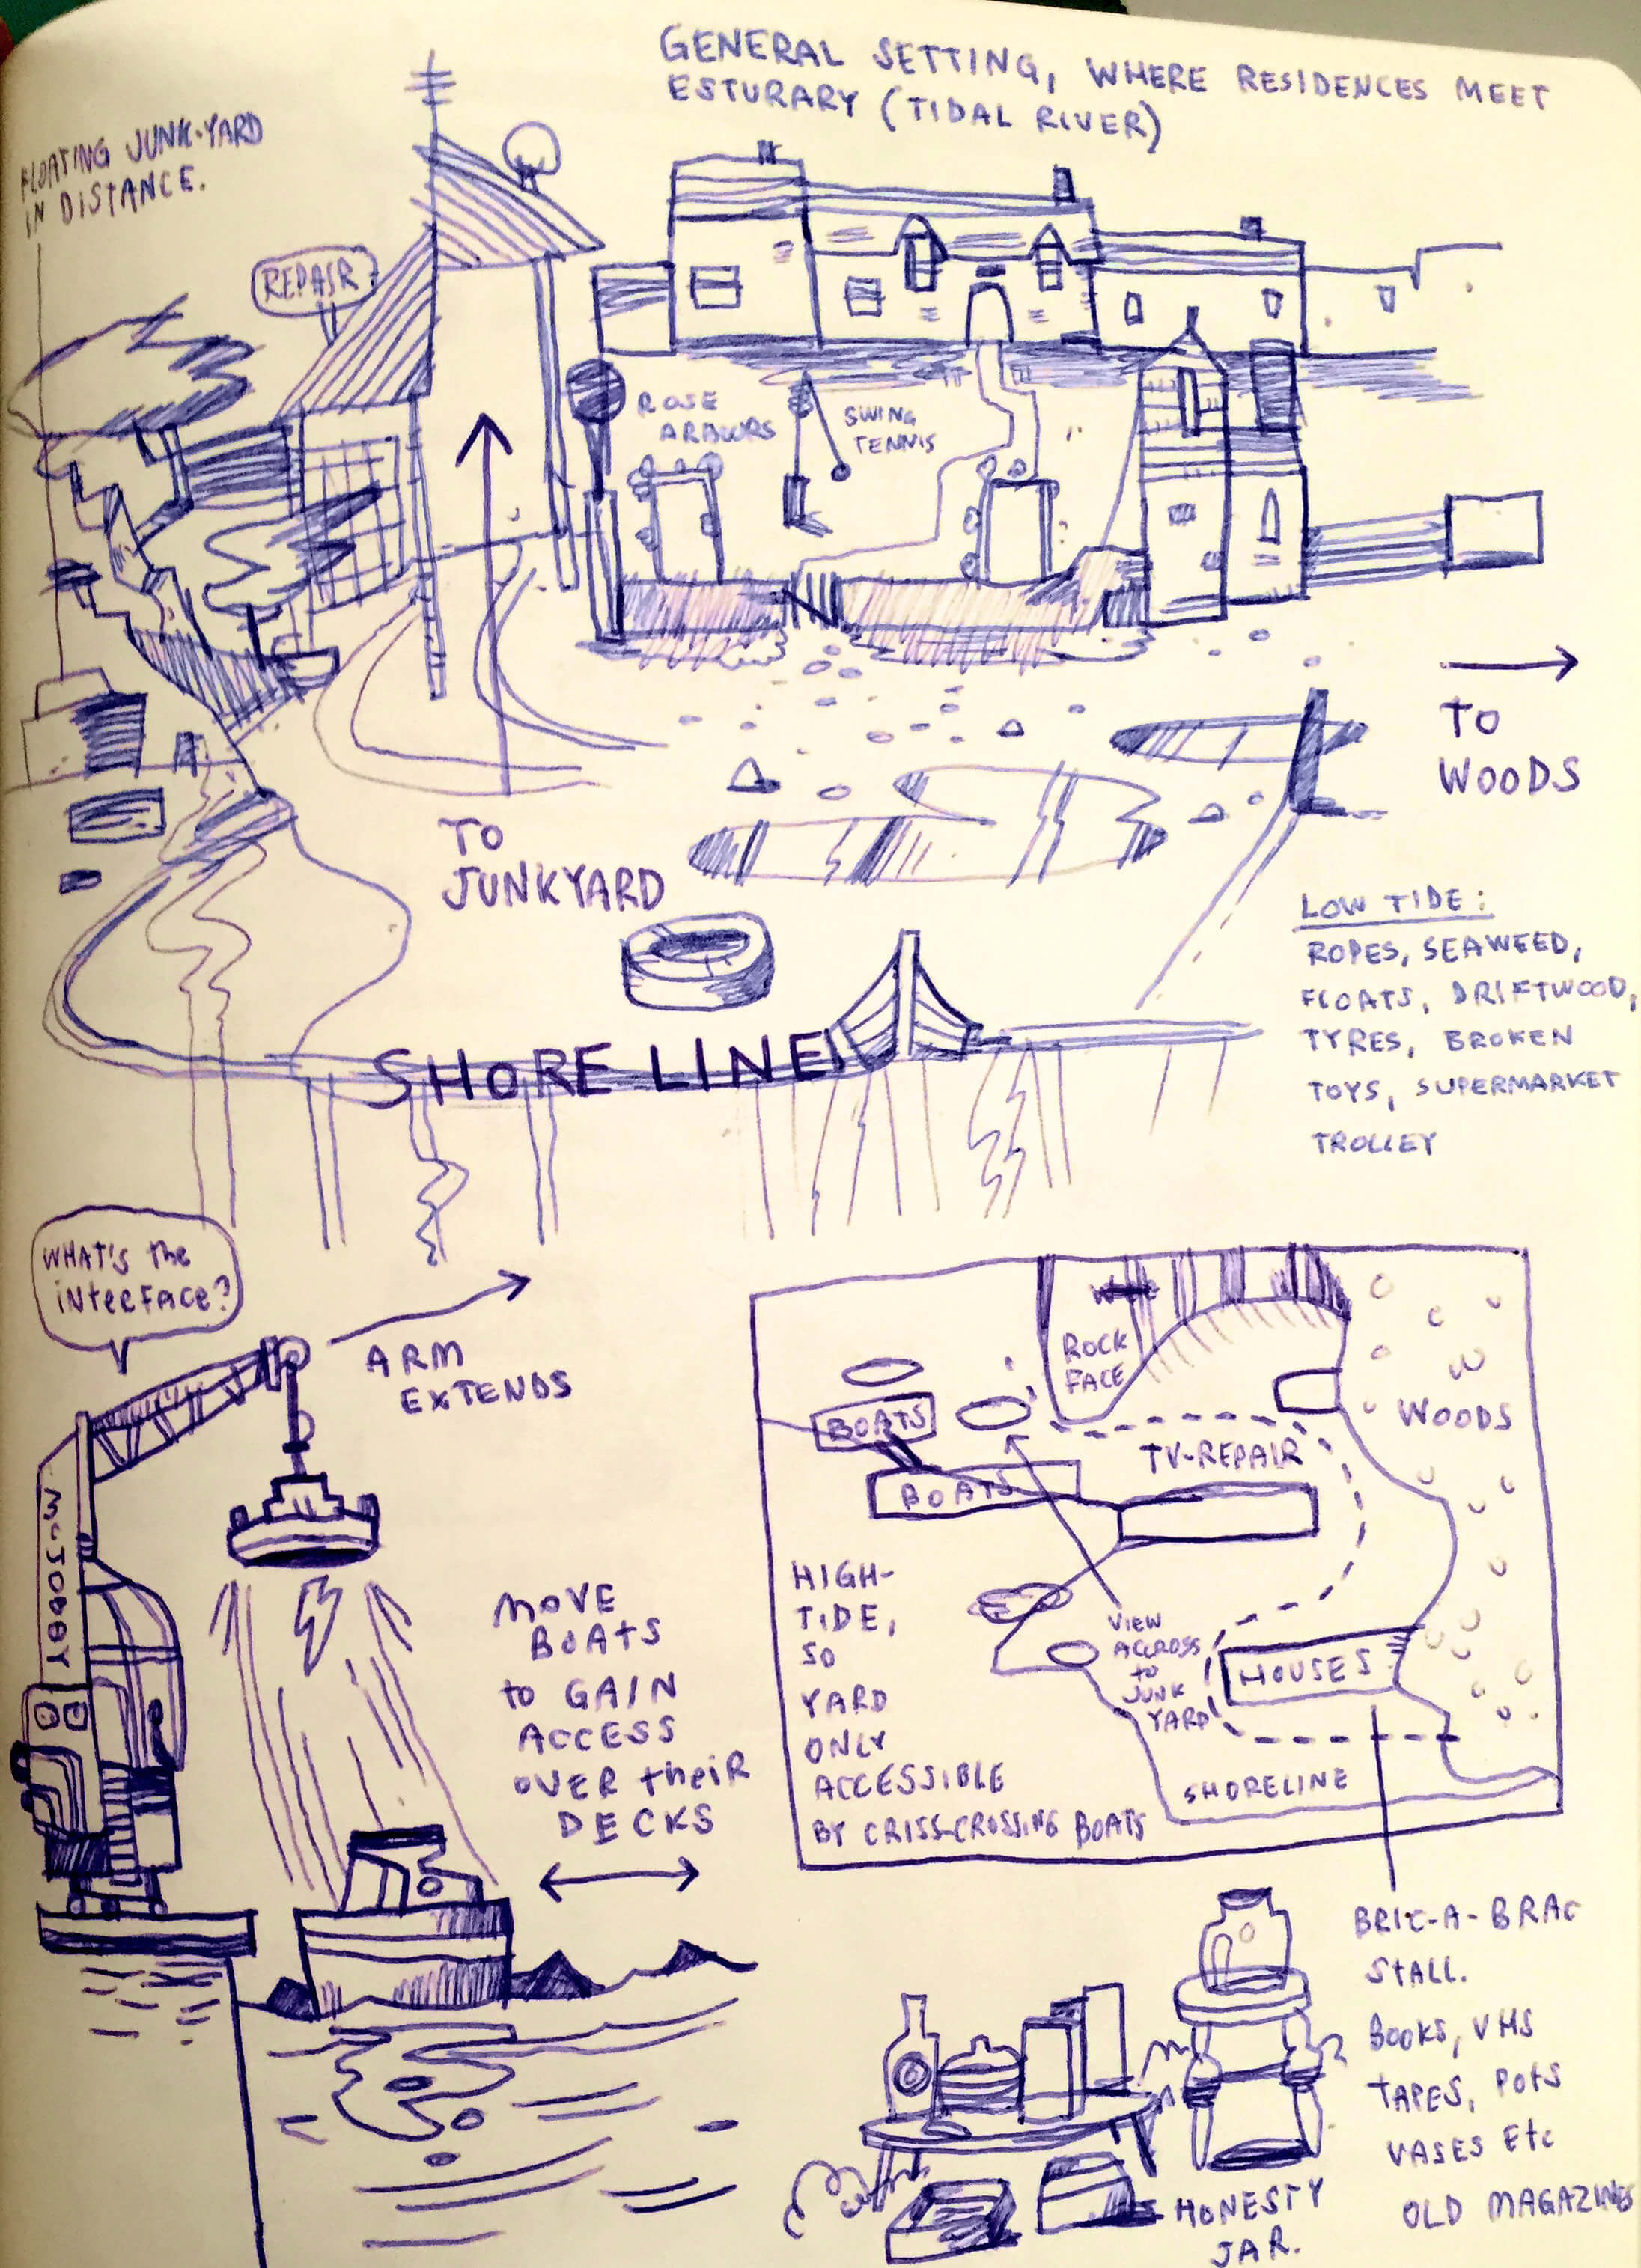 GENERAL SETTING, WHERE RESIDENCES MEET
ESTURARY (TIDAL RIVER)
FLOATING JUNK-YARD
IN DISTANCE.
REPAIR
ROSE
ARBOURS
SWING
TENNIS
TO
WOODS
TO
JUNKYARD
LOW TIDE:
ROPES, SEAWEED,
FLOATS, DRIFTWOOD,
TYRES, BROKEN
TOYS, SUPERMARKET
TROLLEY
SHORE LINE
WHAT'S the
interface?
ARM
EXTENDS
Mc JOBBY
MOVE
BOATS
to GAIN
ACCESS
OVER theiR
DECKS
ROCK
FACE
WOODS
BOATS
BOATS
TV-REPAIR
HIGH-
TIDE,
SO
YARD
ONLY
ACCESSIBLE
BY CRISS-CROSSING BOATS
VIEW
ACCROSS
to
JUNK
YARD
HOUSES
SHORELINE
BRIC-A-BRAC
STALL.
BOOKS, VHS
TAPES, POTS
VASES Etc
OLD MAGAZINES
HONESTY
JAR.